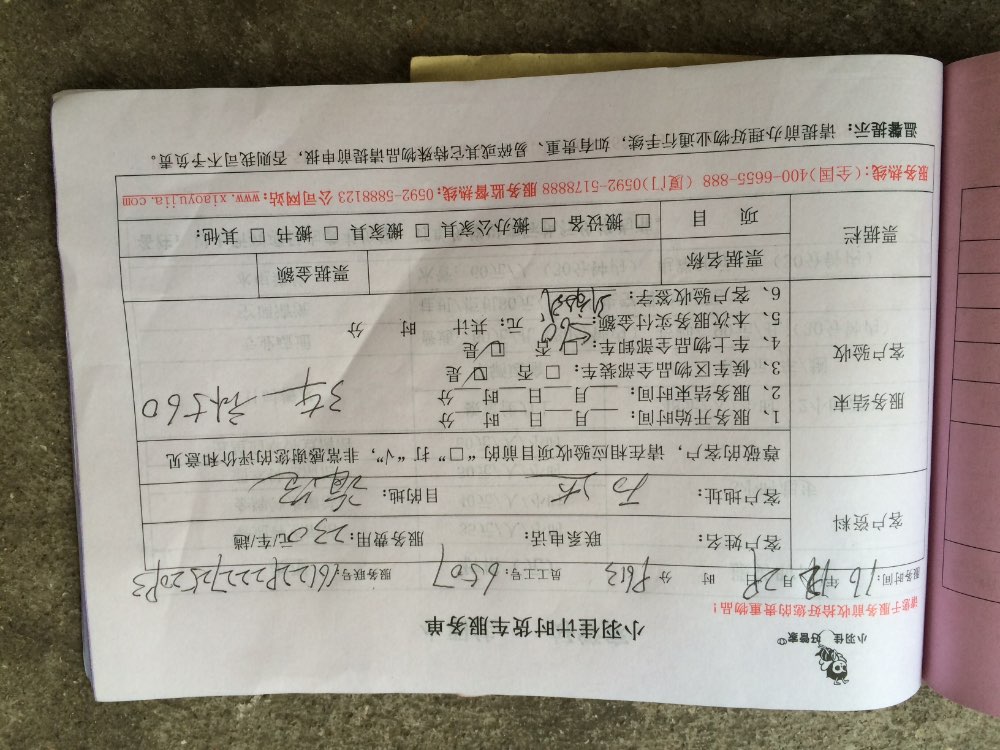 小羽佳 好管家
小羽佳计时货车服务单
请您于服务前收拾好您的贵重物品!
服务时间: 16 年 12 月 29 日 时 分 员工工号: 6507 服务联号:
客户资料
客户姓名: 联系电话: 服务费用: 230 元/车/趟
客户地址: 目的地:
尊敬的客户, 请在相应验收项目前的“□”打“√”, 非常感谢您的评价和意见
服务结束
客户验收
1、服务开始时间: 月 日 时 分
2、服务结束时间: 月 日 时 分
3、候车区物品全部装车: □ 否 □ 是
4、车上物品全部卸车: □ 否 □ 是
5、本次服务实付金额: 560 元; 共计 时 分
6、客户验收签字:
票据栏
票据名称 票据金额
项 目 □ 搬设备 □ 搬办公家具 □ 搬家具 □ 搬书 □ 其他:
服务热线:(全国)400-6655-888 (厦门)0592-5178888 服务监督热线: 0592-5888123 公司网站: www.xiaoyujia.com
温馨提示: 请提前办理好物业通行手续, 如有贵重、易碎或其它特殊物品请提前申报, 否则我司不予负责。